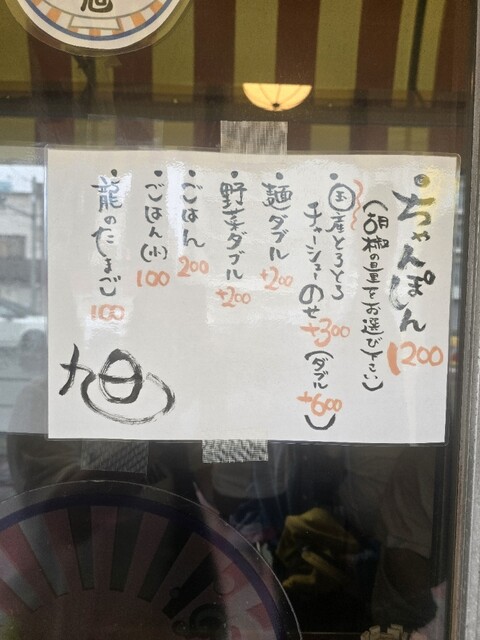 ・ちゃんぽん 1200
(胡椒の量をお選び下さい)
・国産とろとろ
チャーシューのせ +300 (ダブル +600)
・麺ダブル +200
・野菜ダブル +200
・ごはん 200
・ごはん(小) 100
・龍のたまご 100
旭